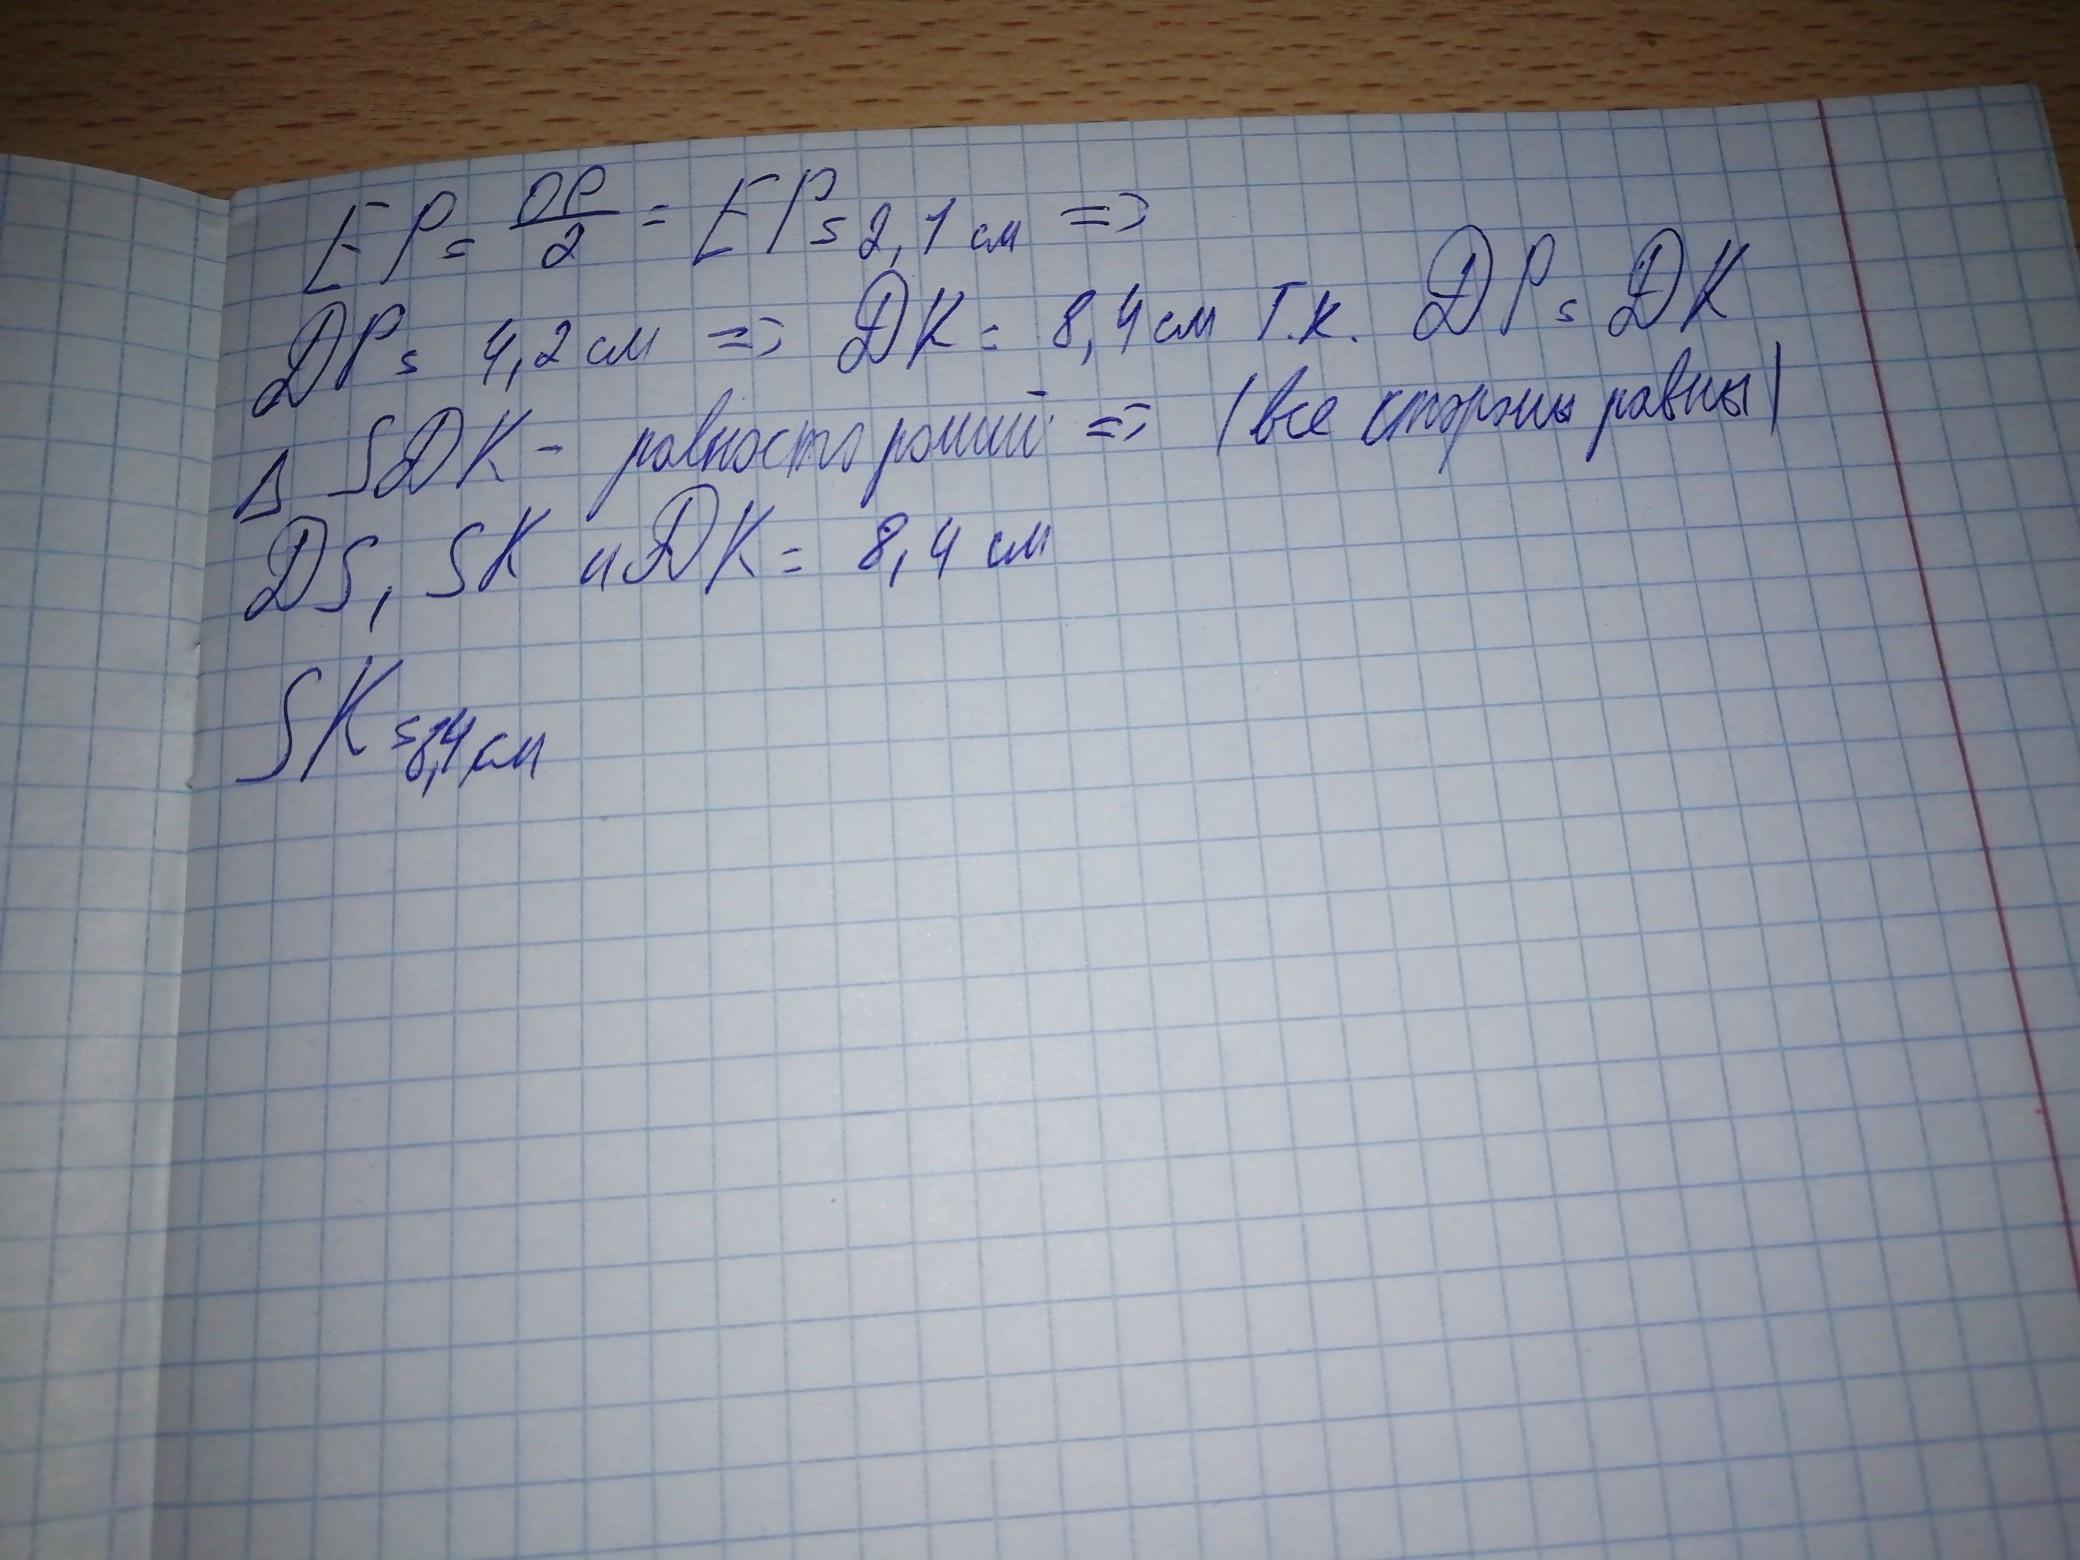 EP = DP/2 = EP = 2,1 см =>
DP = 4,2 см => DK = 8,4 см т.к. DP = DK
Δ SDK - равносторонний => (все стороны равны)
DS, SK и DK = 8,4 см
SK = 8,4 см